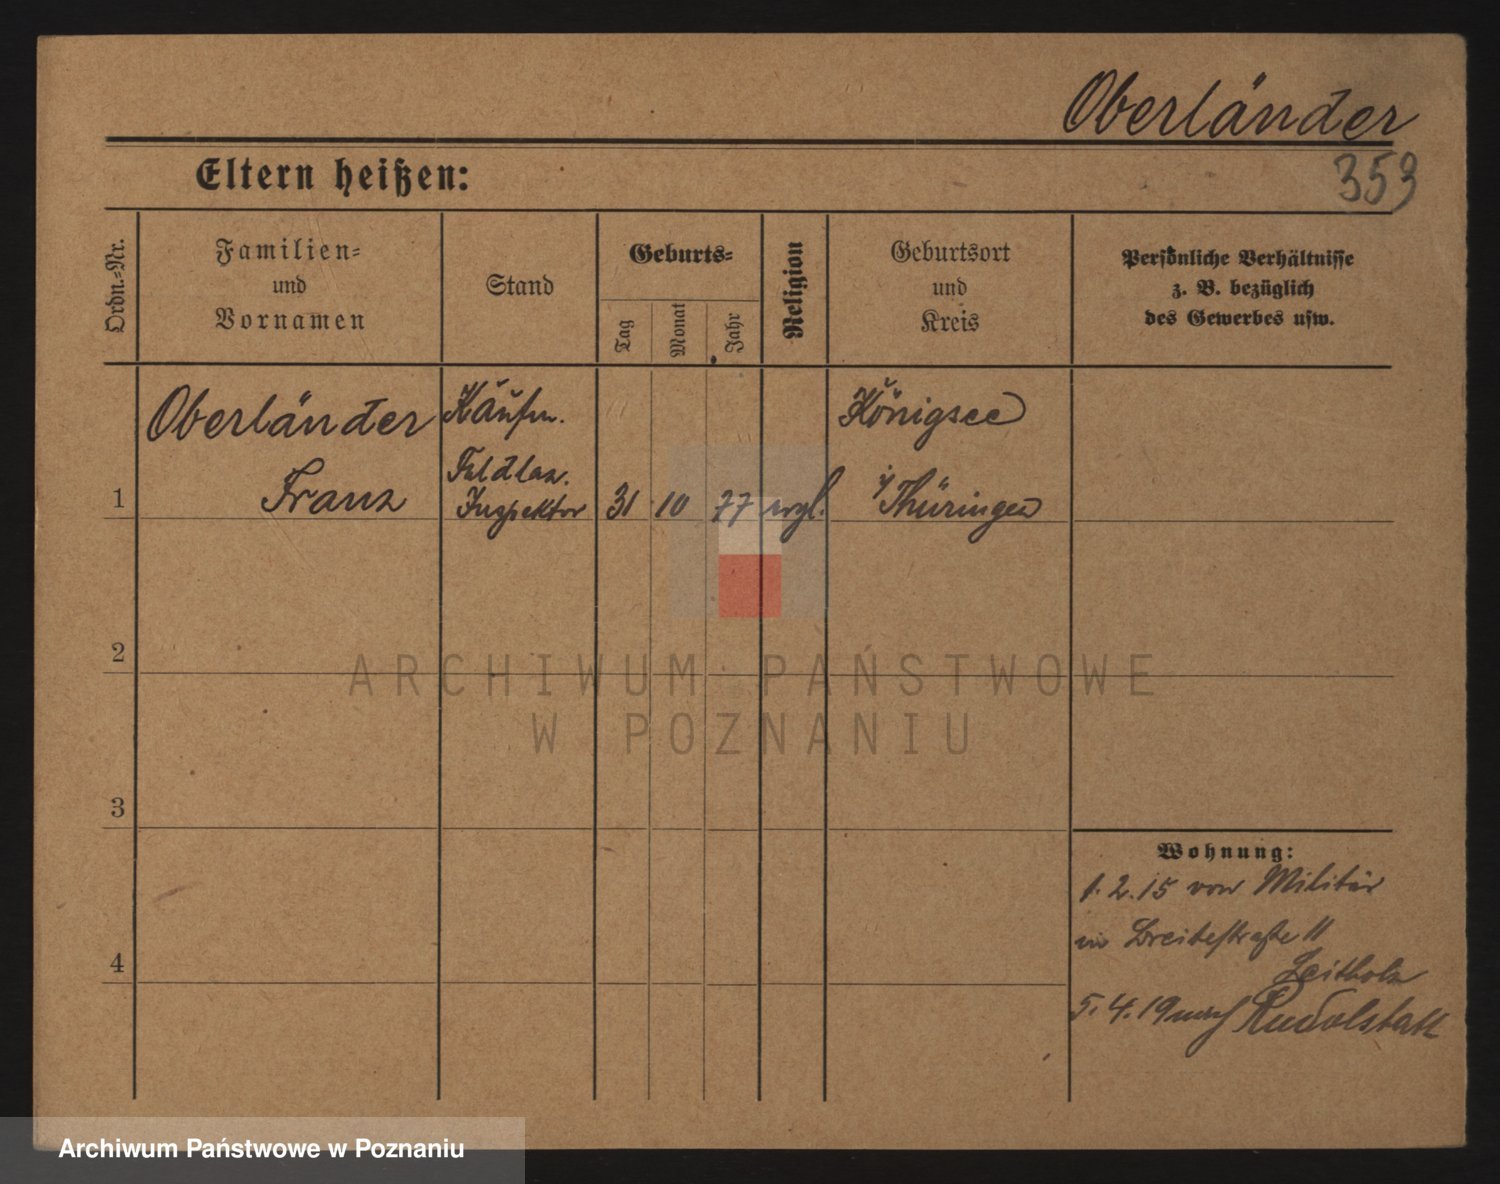 Oberländer
353
Eltern heißen:
Ordn.-Nr.
Familien-
und
Vornamen
Stand
Geburts-
Tag
Monat
Jahr
Religion
Geburtsort
und
Kreis
Persönliche Verhältnisse
z. B. bezüglich
des Gewerbes usw.
1
Oberländer
Franz
Kaufm.
Feldlaz.
Inspektor
31
10
77
evgl.
Königsee
i/Thüringen
2
3
4
Wohnung:
1.2.15 von Militär
in Breitestraße 11
Leitholz
5.4.19 nach Rudolstatt
ARCHIWUM PAŃSTWOWE
W POZNANIU
Archiwum Państwowe w Poznaniu